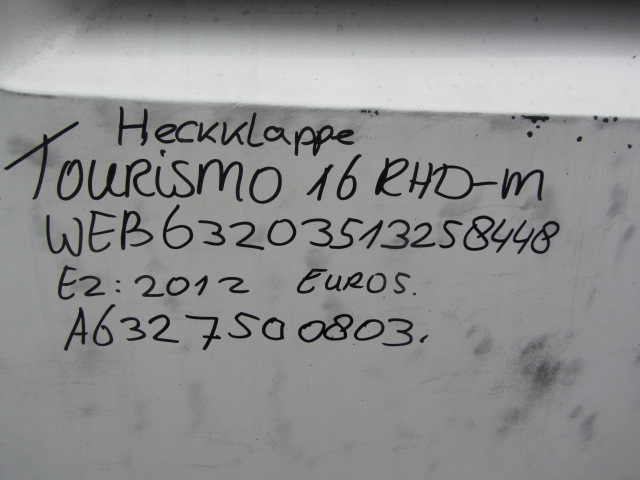 Heckklappe
Tourismo 16 RHD-M
WEB63203513258448
EZ: 2012 EURO5.
A6327500803.